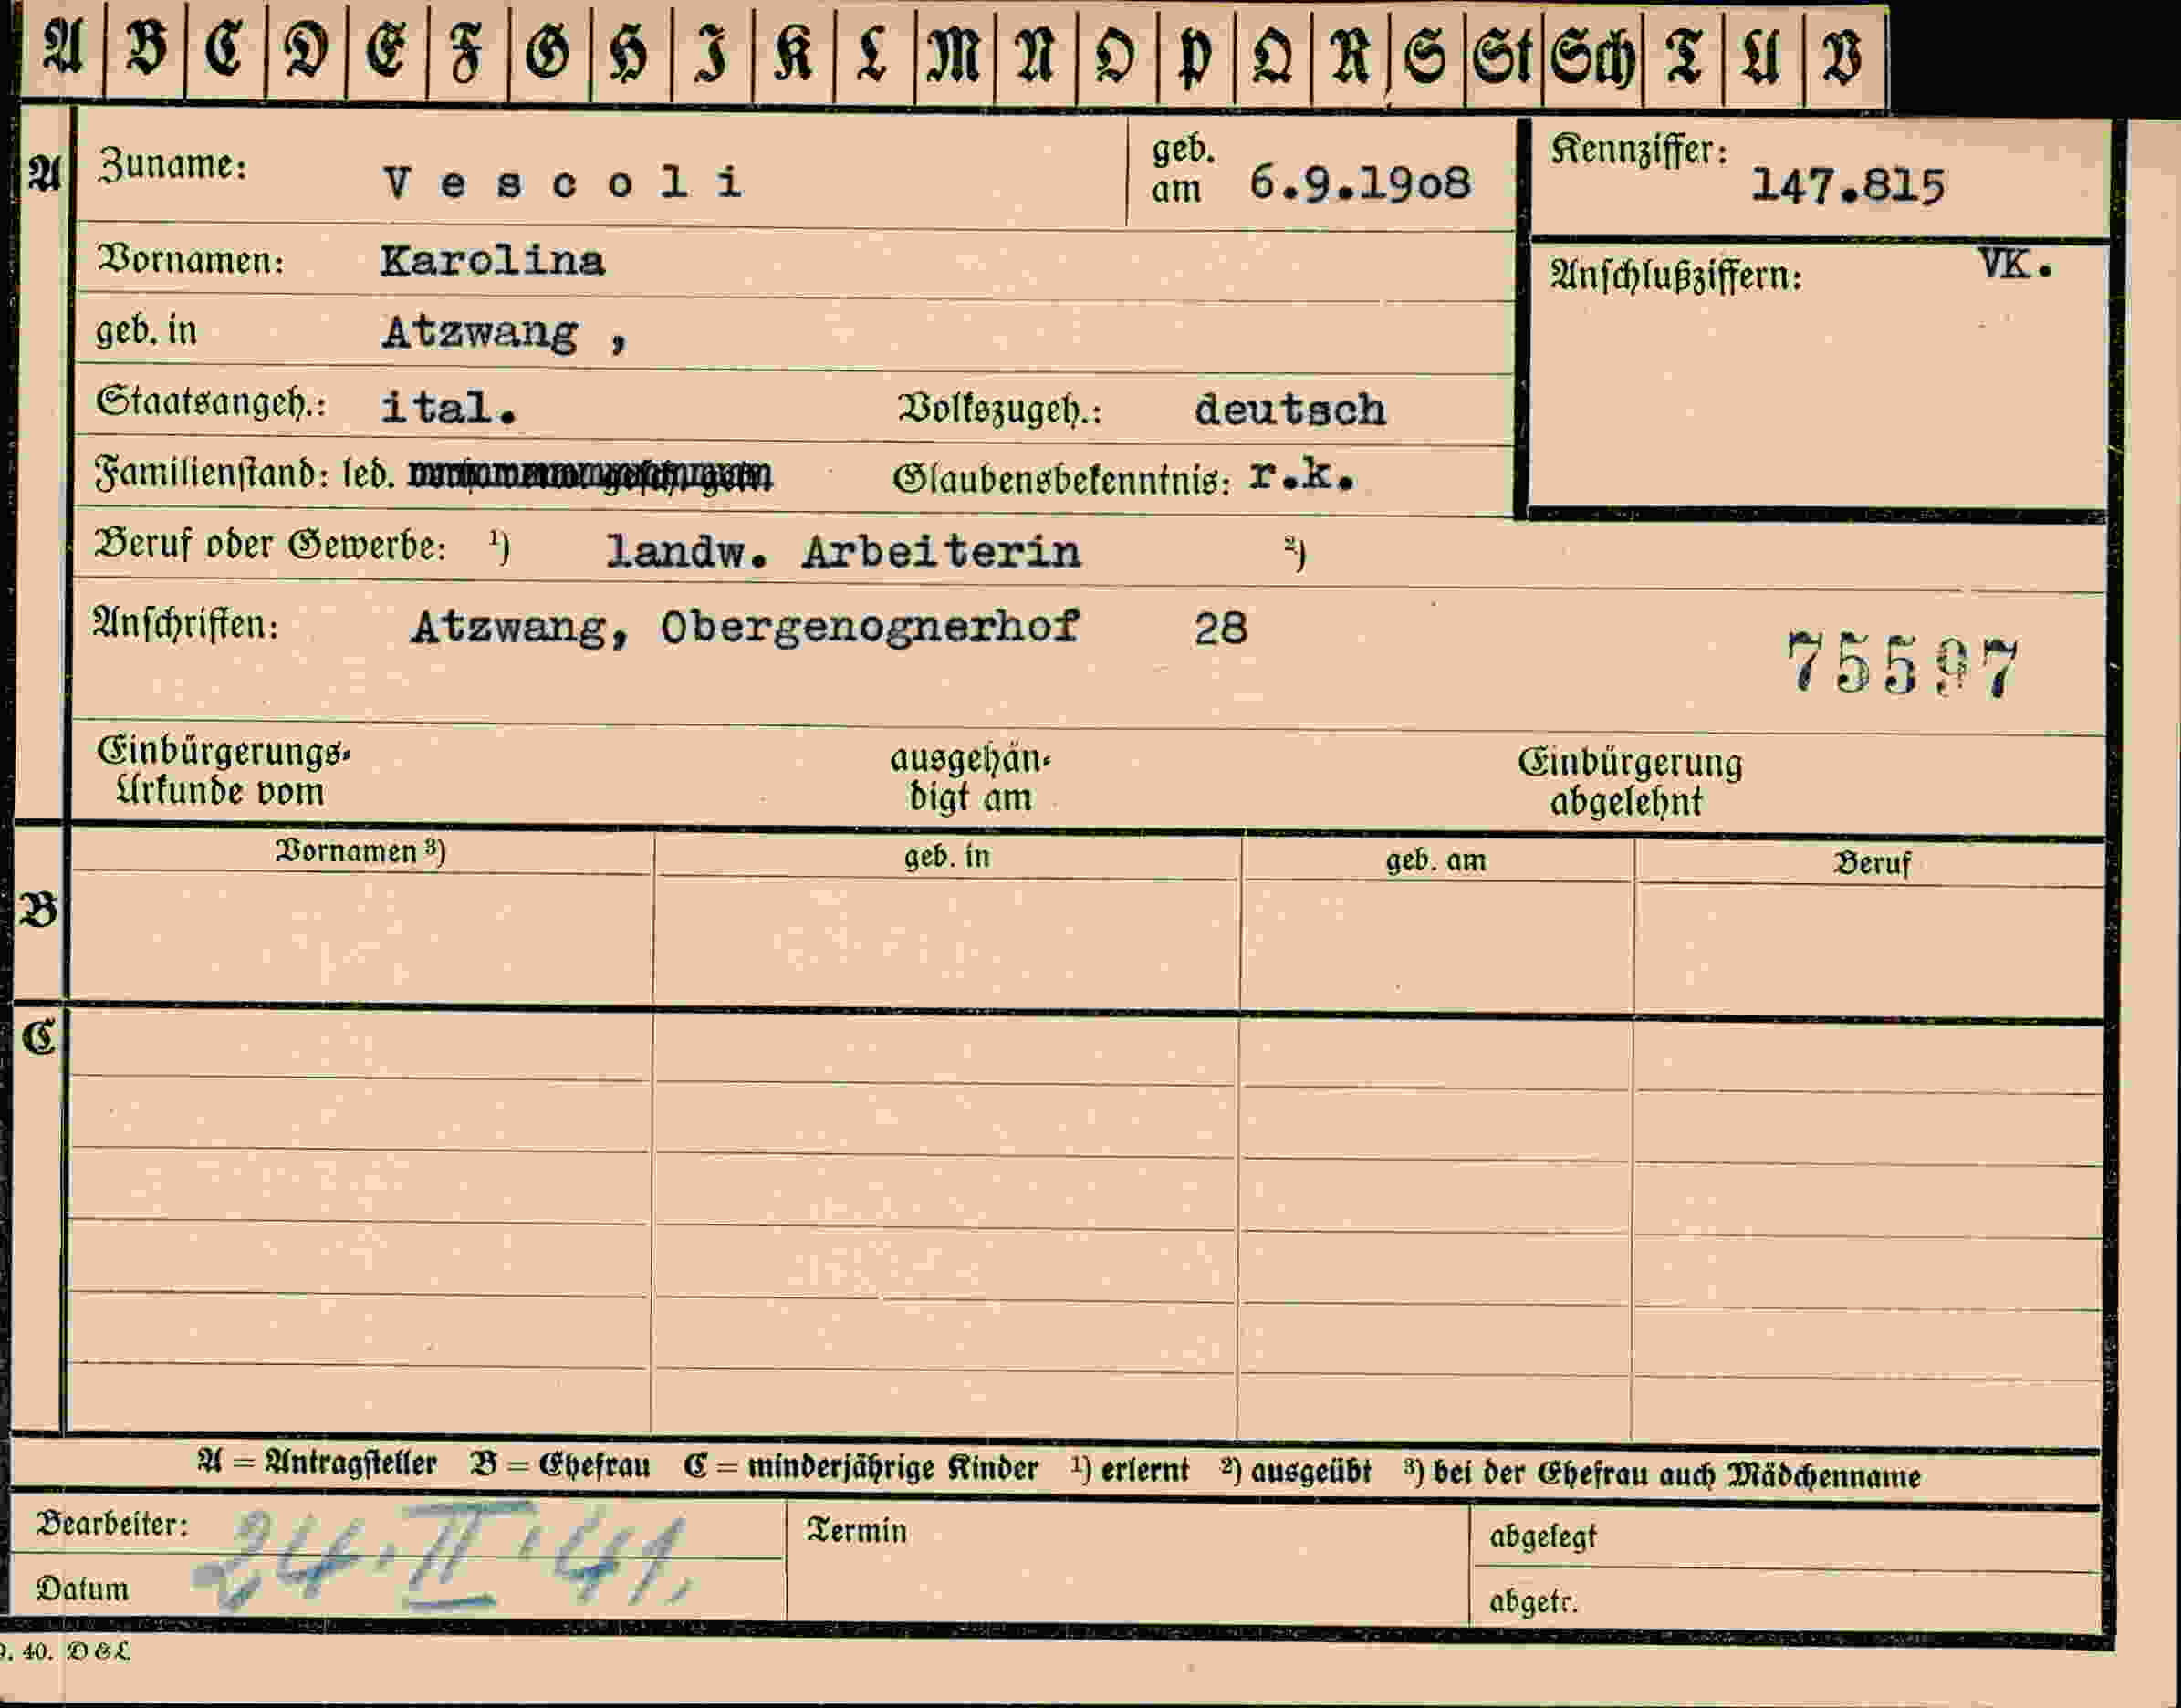 A B C D E F G H I K L M N O P Q R S St Sch T U V
A Zuname: Vescoli geb. am 6.9.19o8 Kennziffer: 147.815
Vornamen: Karolina Anschlußziffern: VK.
geb. in Atzwang ,
Staatsangeh.: ital. Volkszugeh.: deutsch
Familienstand: led. Glaubensbekenntnis: r.k.
Beruf oder Gewerbe: ¹) landw. Arbeiterin ²)
Anschriften: Atzwang, Obergenognerhof 28
75597
Einbürgerungs- ausgehän- Einbürgerung
Urkunde vom digt am abgelehnt
Vornamen ³) geb. in geb. am Beruf
B
C
A = Antragsteller B = Ehefrau C = minderjährige Kinder ¹) erlernt ²) ausgeübt ³) bei der Ehefrau auch Mädchenname
Bearbeiter: 24.II.41. Termin abgelegt
Datum abgetr.
40. D&L